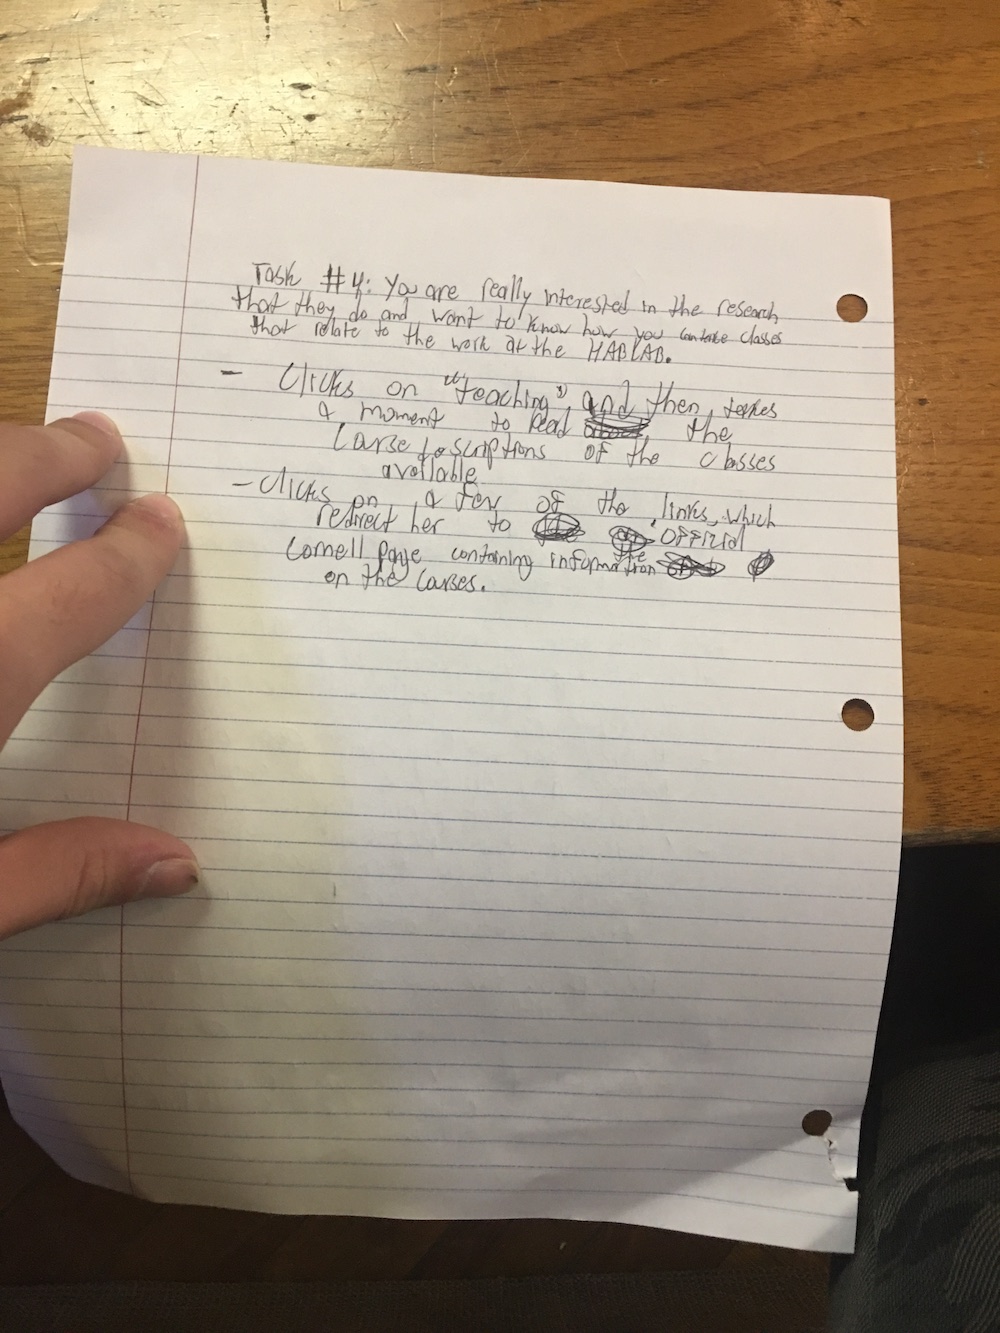 Task #4: You are really interested in the research
that they do and want to know how you can take classes
that relate to the work at the HABLAB.
- Clicks on "teaching" and then takes
a moment to read the
Course descriptions of the classes
available
- Clicks on a few of the links, which
redirect her to official
Cornell page containing the information
on the courses.